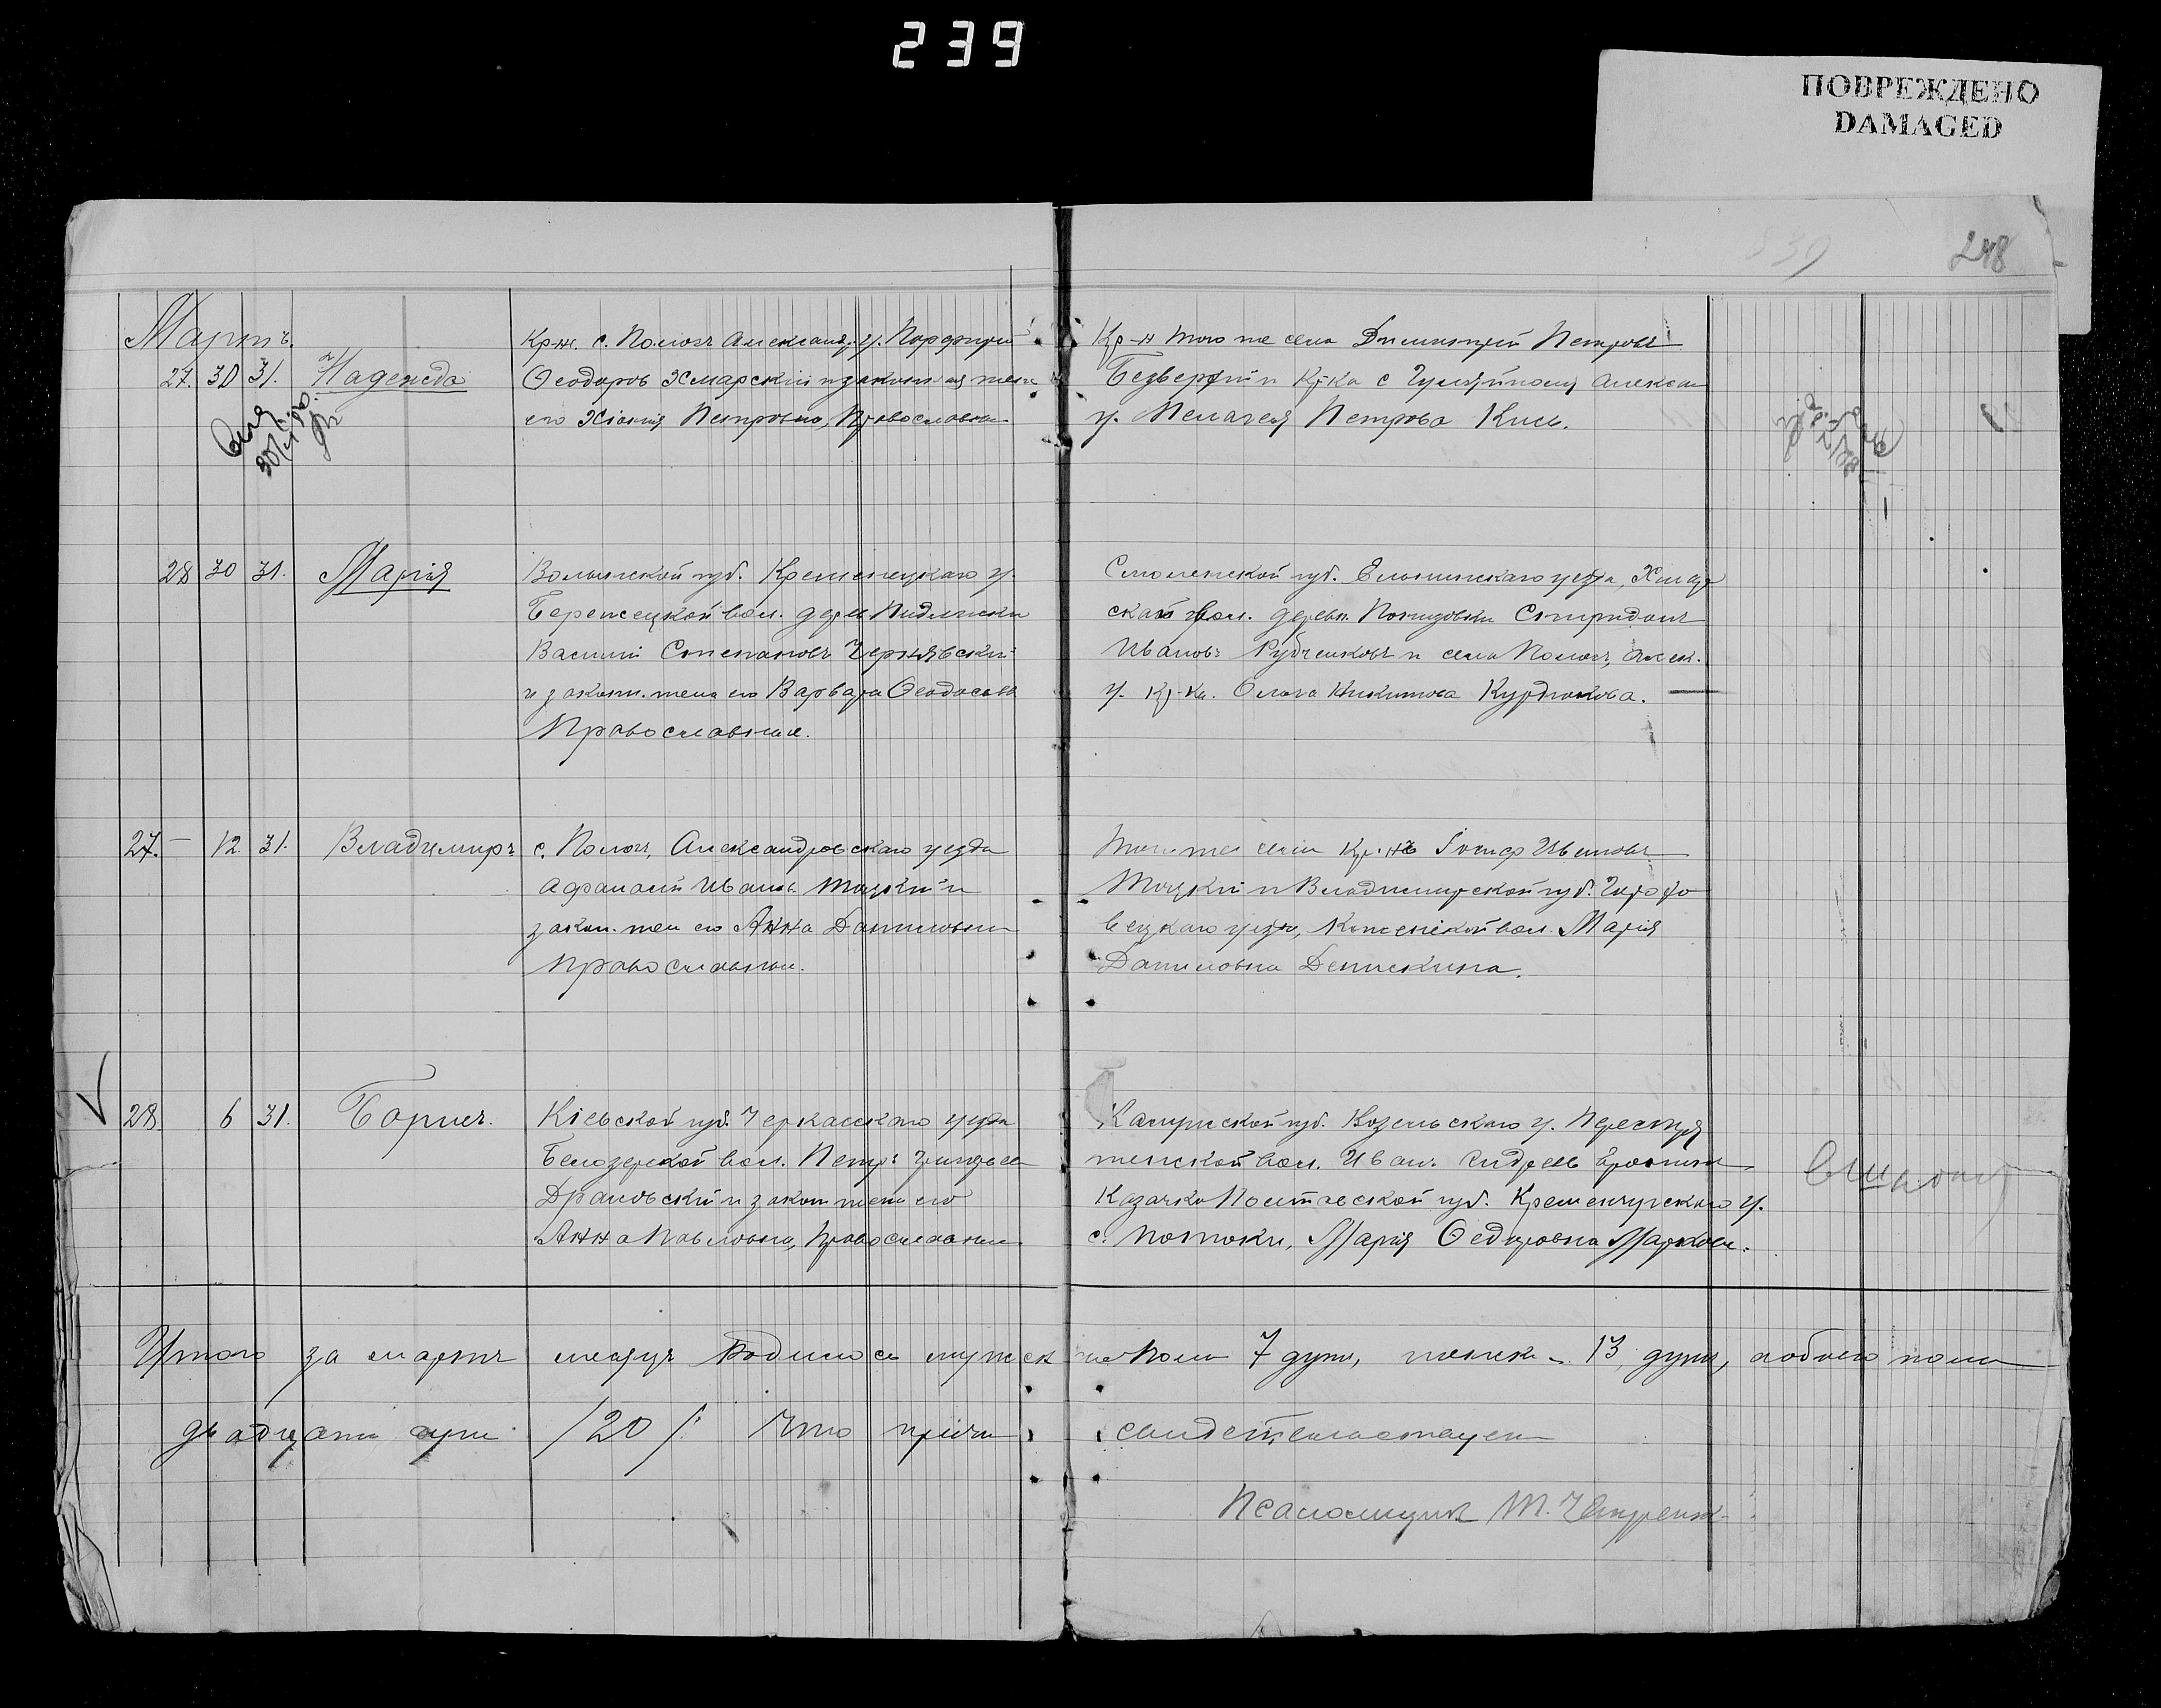 239
ПОВРЕЖДЕНО
DAMAGED
248
Мартъ.
27. 30 31. Надежда
Кр-нъ. с. Пологъ Александ. у. Порфирій
Ѳеодоровъ Хмарскій и законная жена
его Хіонія Петровна, Православн.
Кр-н того же села Димитрій Петровъ
Безверхій и Кр-ка с Гуляйполя Алексан
у. Пелагея Петрова Кись.
28 30 31. Марія
Волынской губ. Кременецкаго у.
Бережецкой вол. дерев.
Василій Степановъ Чернявскій
и законн. жена его Варвара Ѳеодосьев
Православные.
Смоленской губ. Ельнинскаго уезда, Хмар
ской вол. деревн. Спиридонъ
Ивановъ и села Пологъ, Алек.
у. Кр-ка. Ольга Никитова Курдюкова.
27. — 12 31. Владимиръ
с. Пологъ, Александровскаго уезда
Афанасій Иванов Тоцкій и
закон. жен его Анна Даниловна
Православные.
Того же села Кр-нъ Іосиф Ивановъ
Тоцкій и Владимирской губ. Горохо
вецкаго уезда, вол. Марія
Даниловна Денискина.
28. 6 31. Борисъ.
Кіевской губ. Черкасскаго уезда
Белозерской вол. Петръ
и закон жена его
Анна Павловна, Православные
Калужской губ. Козельскаго у.
вол. Иванъ
Казачка Полтавской губ. Кременчугскаго у.
с. Потоки, Марія Ѳедоровна
Итого за мартъ месяцъ Родилось мужск
пола 7 душъ, женск. 13 душъ, обоего пола
двадцать душъ /20/ Что причтъ
свидетельствуетъ
Псаломщикъ Т.